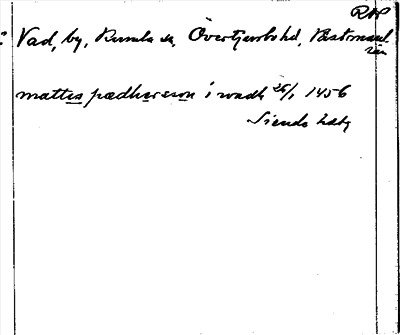 RAP
: Vad, by, Rumla sn, Övertjurbo hd, Västmanl
län
mattis pædherson i wadh 26/1 1456
Siende häty